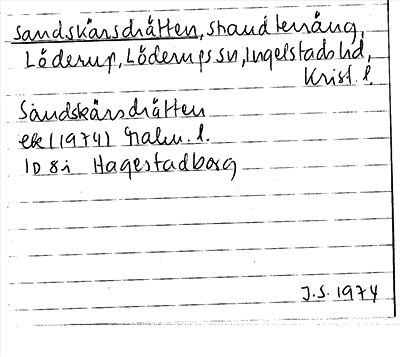 Sandskärsdrätten, strandterräng,
Löderup, Löderups sn, Ingelstads hd,
Krist. l.
Sandskärsdrätten
ek (1974) Malm. l.
1D 8i Hagestadborg
J.S. 1974